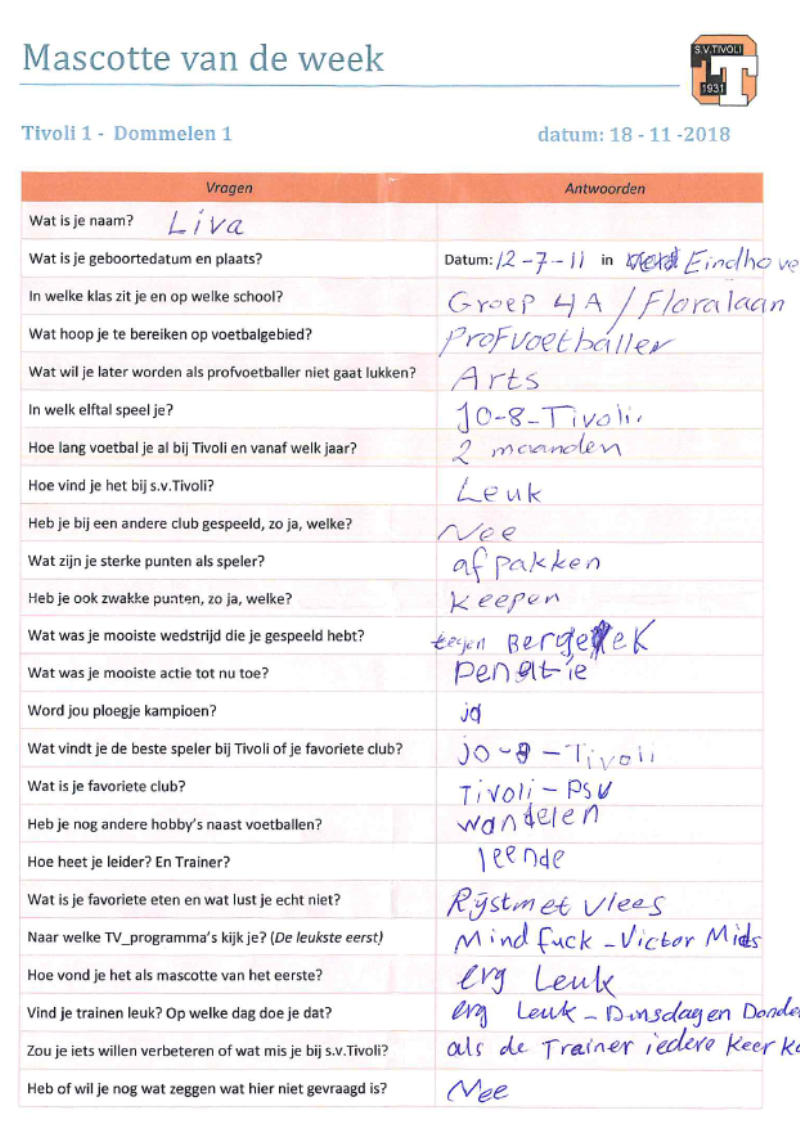 Mascotte van de week
S.V.TIVOLI
1931
Tivoli 1 - Dommelen 1 datum: 18 - 11 -2018
Vragen Antwoorden
Wat is je naam? Liva
Wat is je geboortedatum en plaats? Datum: 12-7-11 in Eindhove
In welke klas zit je en op welke school? Groep 4A / Floralaan
Wat hoop je te bereiken op voetbalgebied? Profvoetballer
Wat wil je later worden als profvoetballer niet gaat lukken? Arts
In welk elftal speel je? JO-8-Tivoli
Hoe lang voetbal je al bij Tivoli en vanaf welk jaar? 2 maanden
Hoe vind je het bij s.v.Tivoli? Leuk
Heb je bij een andere club gespeeld, zo ja, welke? Nee
Wat zijn je sterke punten als speler? afpakken
Heb je ook zwakke punten, zo ja, welke? keepen
Wat was je mooiste wedstrijd die je gespeeld hebt? tegen
Wat was je mooiste actie tot nu toe? Penatie
Word jou ploegje kampioen? ja
Wat vindt je de beste speler bij Tivoli of je favoriete club? jo-8-Tivoli
Wat is je favoriete club? Tivoli - PSV
Heb je nog andere hobby's naast voetballen? wandelen
Hoe heet je leider? En Trainer? leende
Wat is je favoriete eten en wat lust je echt niet? Rijst met vlees
Naar welke TV_programma's kijk je? (De leukste eerst) Mindfuck - Victor Mids
Hoe vond je het als mascotte van het eerste? erg Leuk
Vind je trainen leuk? Op welke dag doe je dat? erg Leuk - Dinsdag en Donde
Zou je iets willen verbeteren of wat mis je bij s.v.Tivoli? als de Trainer iedere keer k
Heb of wil je nog wat zeggen wat hier niet gevraagd is? Nee